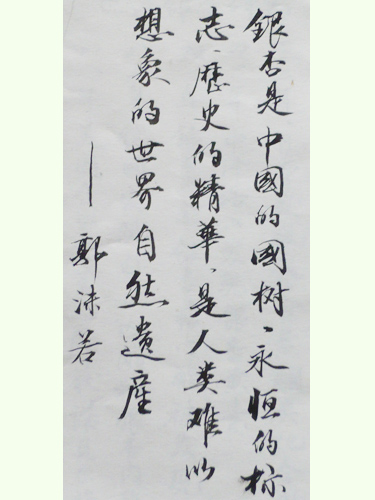 銀杏是中國的國树、永恒的标
志、歷史的精華、是人类难以
想象的世界自然遺産
——郭沫若